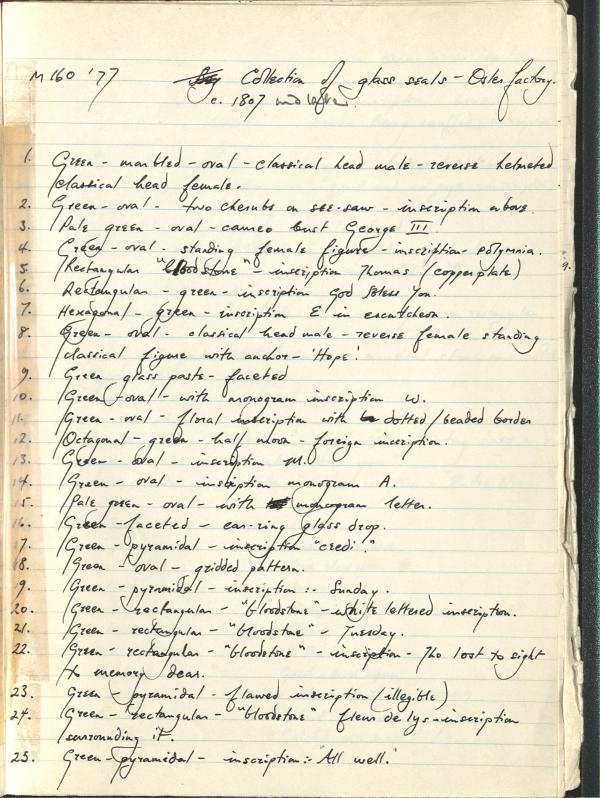 M160 '77 Collection of glass seals - Osler factory.
c. 1807 and later.
1. Green - marbled - oval - classical head male - reverse helmeted
classical head female.
2. Green - oval - two cherubs on see-saw - inscription above.
3. Pale green - oval - cameo bust George III
4. Green - oval - standing female figure - inscription - Polymnia.
5. Rectangular "bloodstone" - inscription Thomas (copperplate)
6. Rectangular - green - inscription God Bless You.
7. Hexagonal - green - inscription E in escutcheon.
8. Green - oval - classical head male - reverse female standing
classical figure with anchor - 'Hope'.
9. Green glass paste - faceted
10. Green - oval - with monogram inscription W.
11. Green - oval - floral inscription with dotted/beaded border
12. Octagonal - green - half moon - foreign inscription.
13. Green - oval - inscription M.
14. Green - oval - inscription monogram A.
15. Pale green - oval - with monogram letter.
16. Green - faceted - ear-ring glass drop.
17. Green - pyramidal - inscription "credi".
18. Green - oval - gridded pattern.
19. Green - pyramidal - inscription :- Sunday.
20. Green - rectangular - "bloodstone" - white lettered inscription.
21. Green - rectangular - "bloodstone" - Tuesday.
22. Green - rectangular - "bloodstone" - inscription - Tho lost to sight
to memory dear.
23. Green - pyramidal - flawed inscription (illegible)
24. Green - rectangular - "bloodstone" fleur de lys - inscription
surrounding it.
25. Green - pyramidal - inscription :- "All well."